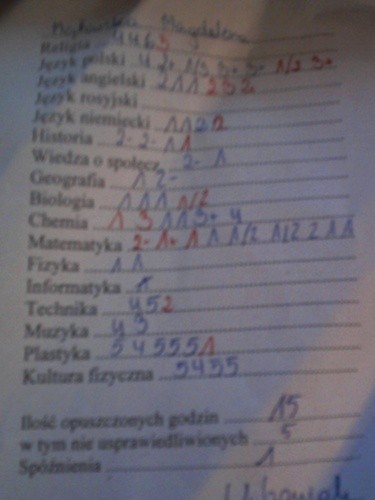 Magdalena
Religia 4 4 6 3
Język polski 4 2+ 1/3 3+ 3+ 1/2 3+
Język angielski 2 1 1 2 3 2
Język rosyjski
Język niemiecki 1 1 2 2
Historia 2- 2- 1 1
Wiedza o społecz. 2- 1
Geografia 1 2-
Biologia 1 1 1 1/2
Chemia 1 3 1 1 3+ 4
Matematyka 2- 1+ 1 1 1 1/2 1/2 2 1 1
Fizyka 1 1
Informatyka
Technika 4 5 2
Muzyka 4 3
Plastyka 5 4 5 5 5 1
Kultura fizyczna 5 4 5 5
Ilość opuszczonych godzin 15
w tym nie usprawiedliwionych 5
Spóźnienia 1